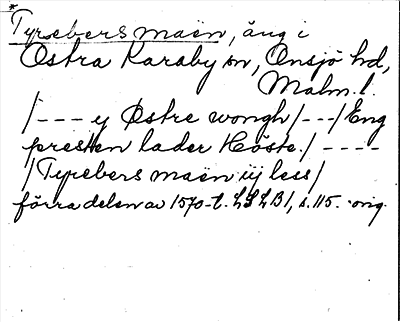 *Tyrsebers maën, äng i
Östra Karaby sn, Onsjö hd,
Malm. l.
/--- y Østre wongh/---/Eng
presten lader Höste./----
/Tyrebers maën iij less/
förra delen av 1570-t. LSLB1, s. 115. orig.